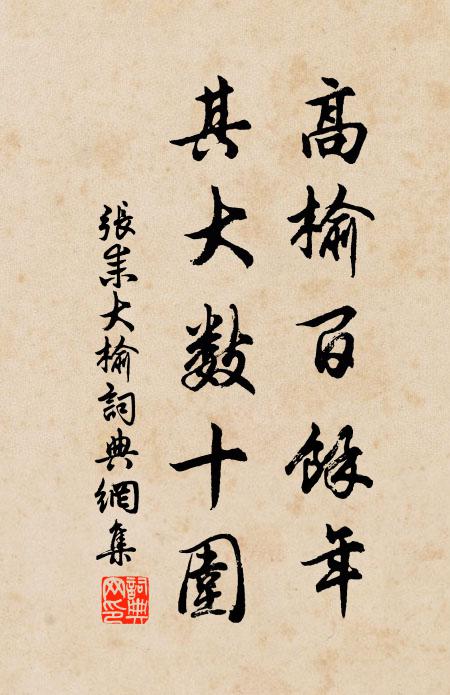 高榆百餘年
其大數十圍
張耒大榆詞典網集
詞典網印